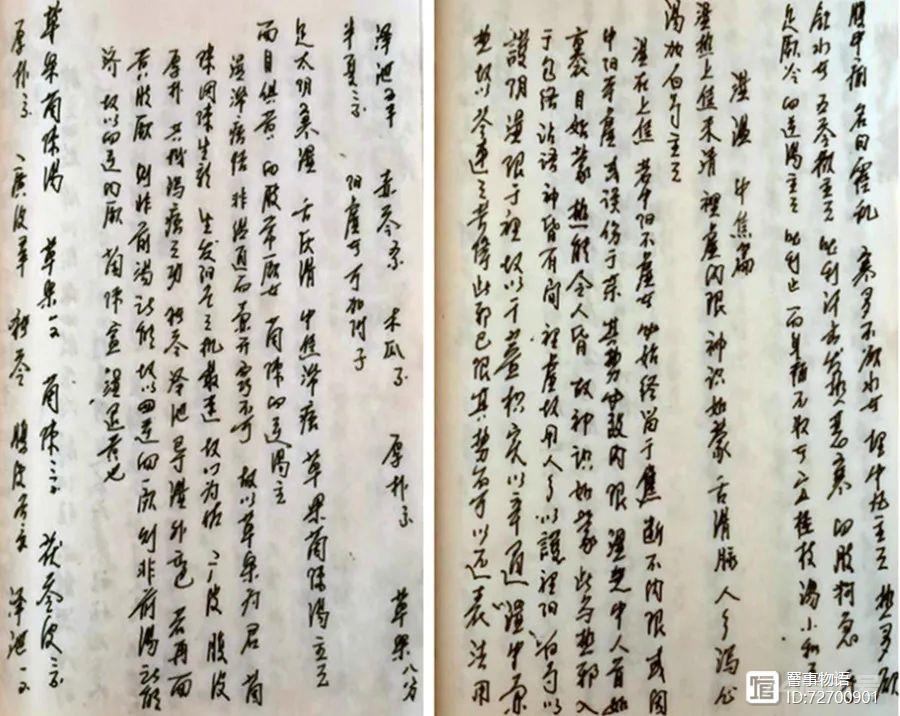 腹中痛 名曰霍乱 寒多不欲水者 理中丸主之 热多欲
饮水者 五苓散主之 吐利汗出 发热恶寒 四肢拘急 手
足厥冷 四逆汤主之 吐利止而身痛不休者 宜桂枝汤小和之
湿温 中焦篇
湿热上焦未清 裡虚内陷 神识如蒙 舌滑脉 人参泻心
汤加白芍主之
湿在上焦 若中阳不虚者 必始终留于焦 断不内陷 或因
中阳本虚 或误伤于药 其势必致内陷 湿之中人首如
裹 目如蒙 热能令人昏 故神识如蒙 此与热邪入
于包络谵语神昏有间 裡虚故用人参以護裡阳 白芍以
護阴 湿陷于裡 故以干姜枳实以辛通 湿中兼
热 故以芩连之苦降 此邪已陷 其势不可以还表 法用
泽泄 赤苓 木瓜 厚朴 草果八分
半夏 阳虚者可加附子
足太阴寒湿 舌灰滑 中焦滞痞 草果茵陈汤主之
面目俱黄 四肢常厥者 茵陈四逆汤主
湿滞痞结 非温通而兼开窍不可 故以草果为君 茵
陈因陈生新 生发阳气之机最速 故以为佐 广皮腹皮
厚朴 共成泻痞之功 猪苓 泽泄 导湿外 若再面
黄肢厥 则非前汤所能 故以四逆回厥 则非前汤所能
济 故以四逆回厥 茵陈宣湿退黄也
草果茵陈汤 草果 茵陈 茯苓皮
厚朴 广皮 猪苓 腹皮 泽泄
瞽事物语
ID:72700901